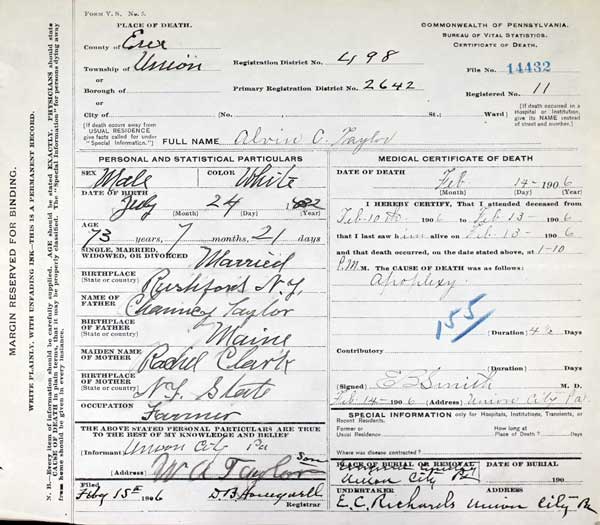 FORM V. S. No. 5.
PLACE OF DEATH.
County of Erie
Township of Union
or
Borough of
or
City of
(If death occurs away from USUAL RESIDENCE give facts called for under "Special Information")
COMMONWEALTH OF PENNSYLVANIA.
BUREAU OF VITAL STATISTICS.
CERTIFICATE OF DEATH.
Registration District No. 498
File No. 14432
Primary Registration District No. 2642
Registered No. 11
(No. St.; Ward)
[If death occurred in a Hospital or Institution, give its NAME instead of street and number.]
FULL NAME Alvin C. Taylor
PERSONAL AND STATISTICAL PARTICULARS
SEX Male COLOR White
DATE OF BIRTH
July 24
(Month) (Day) (Year)
AGE
73 years, 7 months, 21 days
SINGLE, MARRIED, WIDOWED, OR DIVORCED Married
BIRTHPLACE (State or country) Rushford N.Y.
NAME OF FATHER Chauncey Taylor
BIRTHPLACE OF FATHER (State or country) Maine
MAIDEN NAME OF MOTHER Rachel Clark
BIRTHPLACE OF MOTHER (State or country) N.Y. State
OCCUPATION Farmer
THE ABOVE STATED PERSONAL PARTICULARS ARE TRUE TO THE BEST OF MY KNOWLEDGE AND BELIEF
(Informant) Union City Pa
(Address) W A Taylor Son
Filed
Feby 15 1906 D.B. Honeywell
Registrar
MEDICAL CERTIFICATE OF DEATH
DATE OF DEATH
Feb 14- 1906
(Month) (Day) (Year)
I HEREBY CERTIFY, That I attended deceased from
Feb 10 1906 to Feb 13- 1906
that I last saw him alive on Feb 13- 1906
and that death occurred, on the date stated above, at 1-10
P.M. M. The CAUSE OF DEATH was as follows:
Apoplexy
155
(Duration) Days
Contributory
(Duration) Days
(Signed) E B Smith M. D.
Feb 14- 1906 (Address) Union City Pa.
SPECIAL INFORMATION only for Hospitals, Institutions, Transients, or Recent Residents.
Former or Usual Residence
How long at Place of Death? Days
Where was disease contracted?
PLACE OF BURIAL OR REMOVAL DATE OF BURIAL
Union City Pa 190
UNDERTAKER ADDRESS
E.C. Richards Union City Pa
MARGIN RESERVED FOR BINDING.
WRITE PLAINLY, WITH UNFADING INK—THIS IS A PERMANENT RECORD.
N. B.—Every item of information should be carefully supplied. AGE should be stated EXACTLY. PHYSICIANS should state
CAUSE OF DEATH in plain terms, that it may be properly classified. The "Special Information" for persons dying away
from home should be given in every instance.